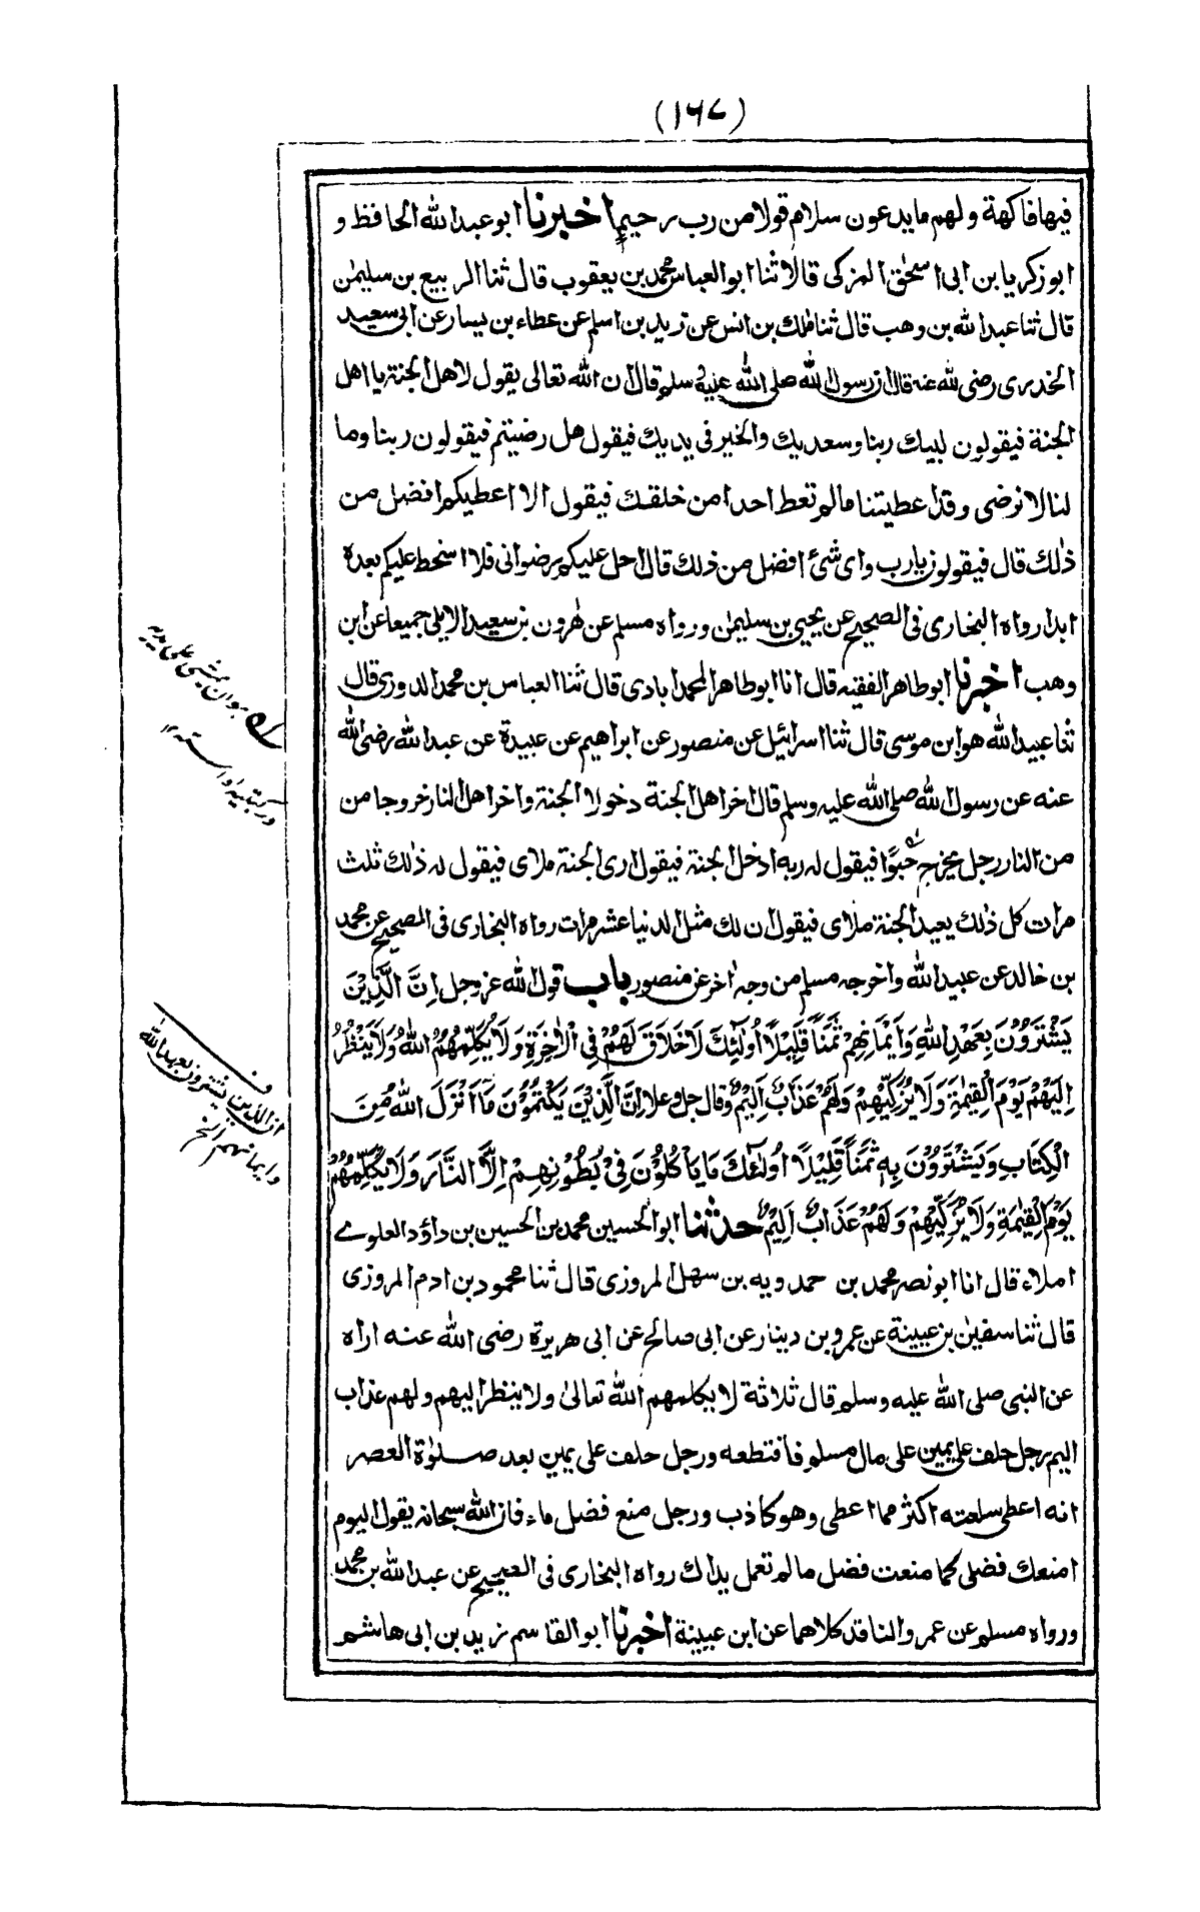 (١٦٧)
فيها فاكهة ولهم ما يدعون سلام قولا من رب رحيم اخبرنا ابو عبد الله الحافظ و
ابو زكريا بن ابى اسحٰق المزكى قالا ثنا ابو العباس محمد بن يعقوب قال ثنا الربيع بن سليمٰن
قال ثنا عبد الله بن وهب قال ثنا مٰلك بن انس عن زيد بن اسلم عن عطاء بن يسار عن ابى سعيد
الخدرى رضى لله عنه قال ان رسول الله صلى الله عليه و سلم قال ان الله تعالى يقول لاهل الجنة يا اهل
الجنة فيقولون لبيك ربنا وسعديك والخير فى يديك فيقول هل رضيتم فيقولون ربنا وما
لنا لا نرضى وقد اعطيتنا مالم تعط احدا من خلقك فيقول الا اعطيكم افضل من
ذٰلك قال فيقولون يارب واى شئ افضل من ذلك قال احل عليكم رضوانى فلا اسخط عليكم بعده
ابدا رواه البخارى فى الصحيح عن يحيى بن سليمٰن ورواه مسلم عن هٰرون بن سعيد الايلى جميعا عن ابن
وهب اخبرنا ابو طاهر الفقيه قال انا ابو طاهر المحمد ابادى قال ثنا العباس بن محمد الدورى قال
ثنا عبيد الله هو ابن موسى قال ثنا اسرائيل عن منصور عن ابراهيم عن عبيدة عن عبد الله رضى الله
عنه عن رسول الله صلى الله عليه وسلم قال اخر اهل الجنة دخولا الجنة واخر اهل النار خروجا من
من النار رجل يخرج حبوًا فيقول له ربه ادخل الجنة فيقول ارى الجنة ملاى فيقول له ذٰلك ثلث
مرات كل ذٰلك يعيد الجنة ملاى فيقول ان لك مثل الدنيا عشر مرات رواه البخارى فى الصحيح عن محمد
بن خالد عن عبيد الله واخرجه مسلم من وجه اٰخر عن منصور باب قول الله عز وجل اِنَّ الَّذِيْنَ
يَشْتَرُوْنَ بِعَهْدِ اللهِ وَاَيْمَانِهِمْ ثَمَناً قَلِيْلًا اُولٰئِكَ لَا خَلَاقَ لَهُمْ فِى الْاٰخِرَةِ وَلَا يُكَلِّمُهُمُ اللهُ وَلَا يَنْظُرُ
اِلَيْهِمْ يَوْمَ الْقِيٰمَةِ وَلَا يُزَكِّيْهِمْ وَلَهُمْ عَذَابٌ اَلِيْمٌ وقال جل وعلا اِنَّ الَّذِيْنَ يَكْتُمُوْنَ مَا اَنْزَلَ اللهُ مِنَ
الْكِتَابِ وَيَشْتَرُوْنَ بِهٖ ثَمَناً قَلِيْلًا اُولٰئِكَ مَا يَأْكُلُوْنَ فِىْ بُطُوْنِهِمْ اِلَّا النَّارَ وَلَا يُكَلِّمُهُمُ
يَوْمَ الْقِيٰمَةِ وَلَا يُزَكِّيْهِمْ وَلَهُمْ عَذَابٌ اَلِيْمٌ حدثنا ابو الحسين محمد بن الحسين بن داؤد العلوے
املاء قال انا ابو نصر محمد بن حمدويه بن سهل المروزى قال ثنا محمود بن ادم المروزى
قال ثنا سفيٰن بن عيينة عن عمرو بن دينار عن ابى صالح عن ابى هريرة رضى الله عنه اراه
عن النبى صلى الله عليه وسلم قال ثلاثة لا يكلمهم الله تعالىٰ ولا ينظر اليهم ولهم عذاب
اليم رجل حلف على يمين على مال مسلم فاقتطعه ورجل حلف على يمين بعد صلوٰة العصر
انه اعطى سلعته اكثر مما اعطى وهو كاذب ورجل منع فضل ماء فان الله سبحانه يقول اليوم
امنعك فضلى كما منعت فضل مالم تعمل يداك رواه البخارى فى الصحيح عن عبد الله بن محمد
ورواه مسلم عن عمرو الناقد كلاهما عن ابن عيينة اخبرنا ابو القاسم زيد بن ابى هاشم
هو ان يمشى على يديه
وركبتيه او استه ١٢
ان الذين يشترون بعهد الله
وايمانهم الخ